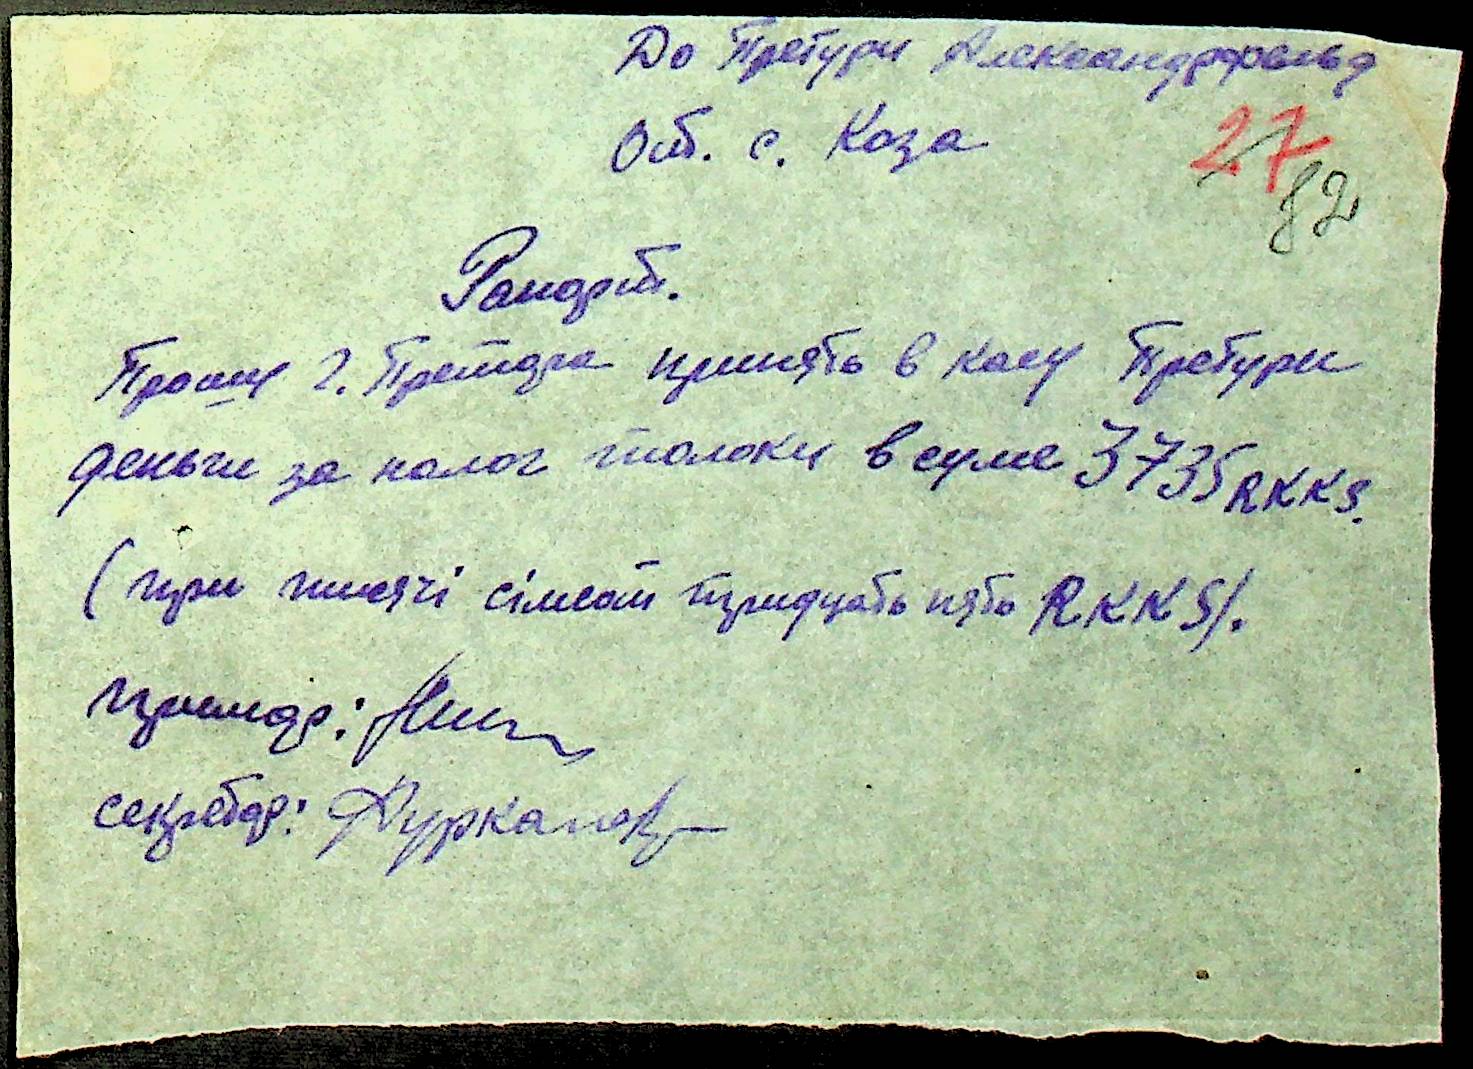 До Претури Александрфельд
От. с. Коза
27
82
Рапорт.
Прошу г. Претора принять в касу Претури
деньги за налог толоки в суме 3735 RKKS.
(три тисячі сімсот тридцать пять RKKS/.
примар:
секретар: